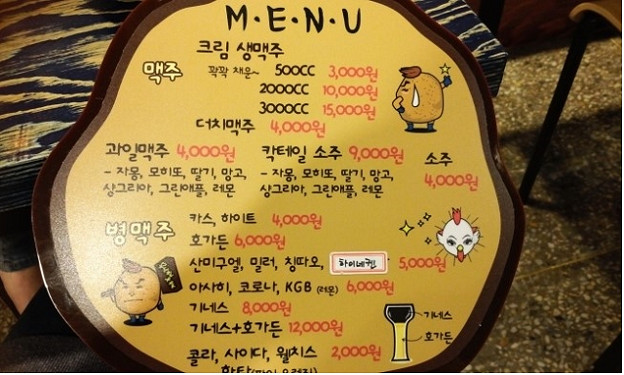 M·E·N·U
크림 생맥주
맥주 꽉꽉 채운~ 500CC 3,000원
2000CC 10,000원
3000CC 15,000원
더치맥주 4,000원
과일맥주 4,000원 칵테일 소주 9,000원 소주
- 자몽, 모히또, 딸기, 망고, - 자몽, 모히또, 딸기, 망고, 4,000원
샹그리아, 그린애플, 레몬 샹그리아, 그린애플, 레몬
병맥주 카스, 하이트 4,000원
호가든 6,000원
산미구엘, 밀러, 칭따오, 하이네켄 5,000원
아사히, 코로나, KGB (레몬) 6,000원
기네스 8,000원
기네스+호가든 12,000원
기네스
호가든
콜라, 사이다, 웰치스 2,000원